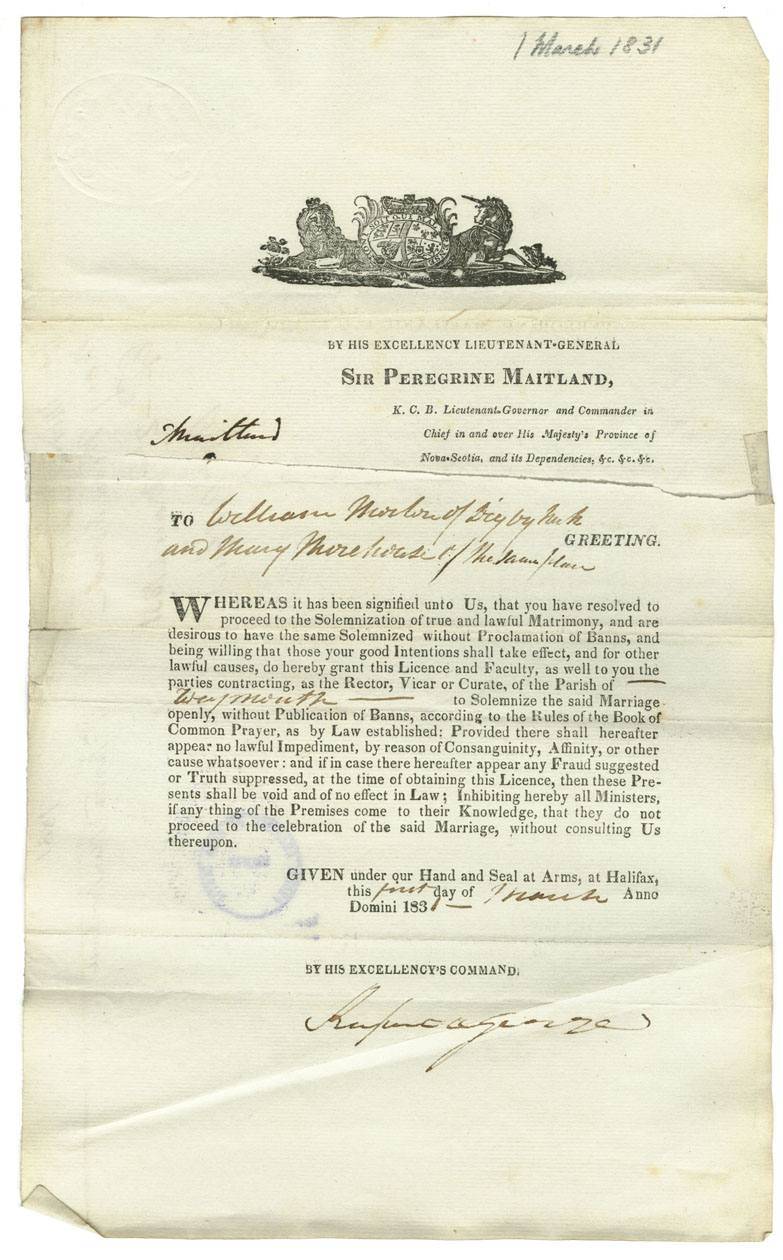 1 March 1831
BY HIS EXCELLENCY LIEUTENANT-GENERAL
SIR PEREGRINE MAITLAND,
K. C. B. Lieutenant-Governor and Commander in
Chief in and over His Majesty's Province of
Nova-Scotia, and its Dependencies, &c. &c. &c.
PMaitland
TO William of Digby Neck
GREETING.
and Mary Morehouse of the same place
WHEREAS it has been signified unto Us, that you have resolved to
proceed to the Solemnization of true and lawful Matrimony, and are
desirous to have the same Solemnized without Proclamation of Banns, and
being willing that those your good Intentions shall take effect, and for other
lawful causes, do hereby grant this Licence and Faculty, as well to you the
parties contracting, as the Rector, Vicar or Curate, of the Parish of
Weymouth to Solemnize the said Marriage
openly, without Publication of Banns, according to the Rules of the Book of
Common Prayer, as by Law established: Provided there shall hereafter
appear no lawful Impediment, by reason of Consanguinity, Affinity, or other
cause whatsoever: and if in case there hereafter appear any Fraud suggested
or Truth suppressed, at the time of obtaining this Licence, then these Pre-
sents shall be void and of no effect in Law; Inhibiting hereby all Ministers,
if any thing of the Premises come to their Knowledge, that they do not
proceed to the celebration of the said Marriage, without consulting Us
thereupon.
GIVEN under our Hand and Seal at Arms, at Halifax,
this first day of March Anno
Domini 1831
BY HIS EXCELLENCY'S COMMAND,
Rupert D George